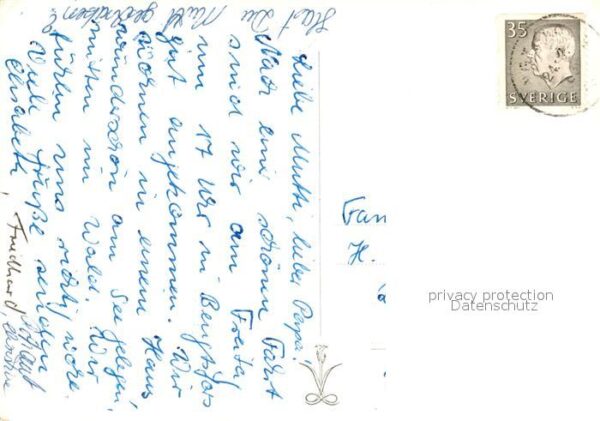 Liebe Mutti, lieber Papa!
Nach einer schönen Fahrt
sind wir am Freitag
um 17 Uhr in Bengtsfors
gut angekommen. Wir
wohnen in einem Haus
wunderschön am See gelegen,
mitten im Wald. Wir
fühlen uns richtig wohl.
Viele Grüße senden
Elisabeth, Friedhard,
Hast Du Mutti
gebraten?
Fam
H.
35
SVERIGE
privacy protection
Datenschutz